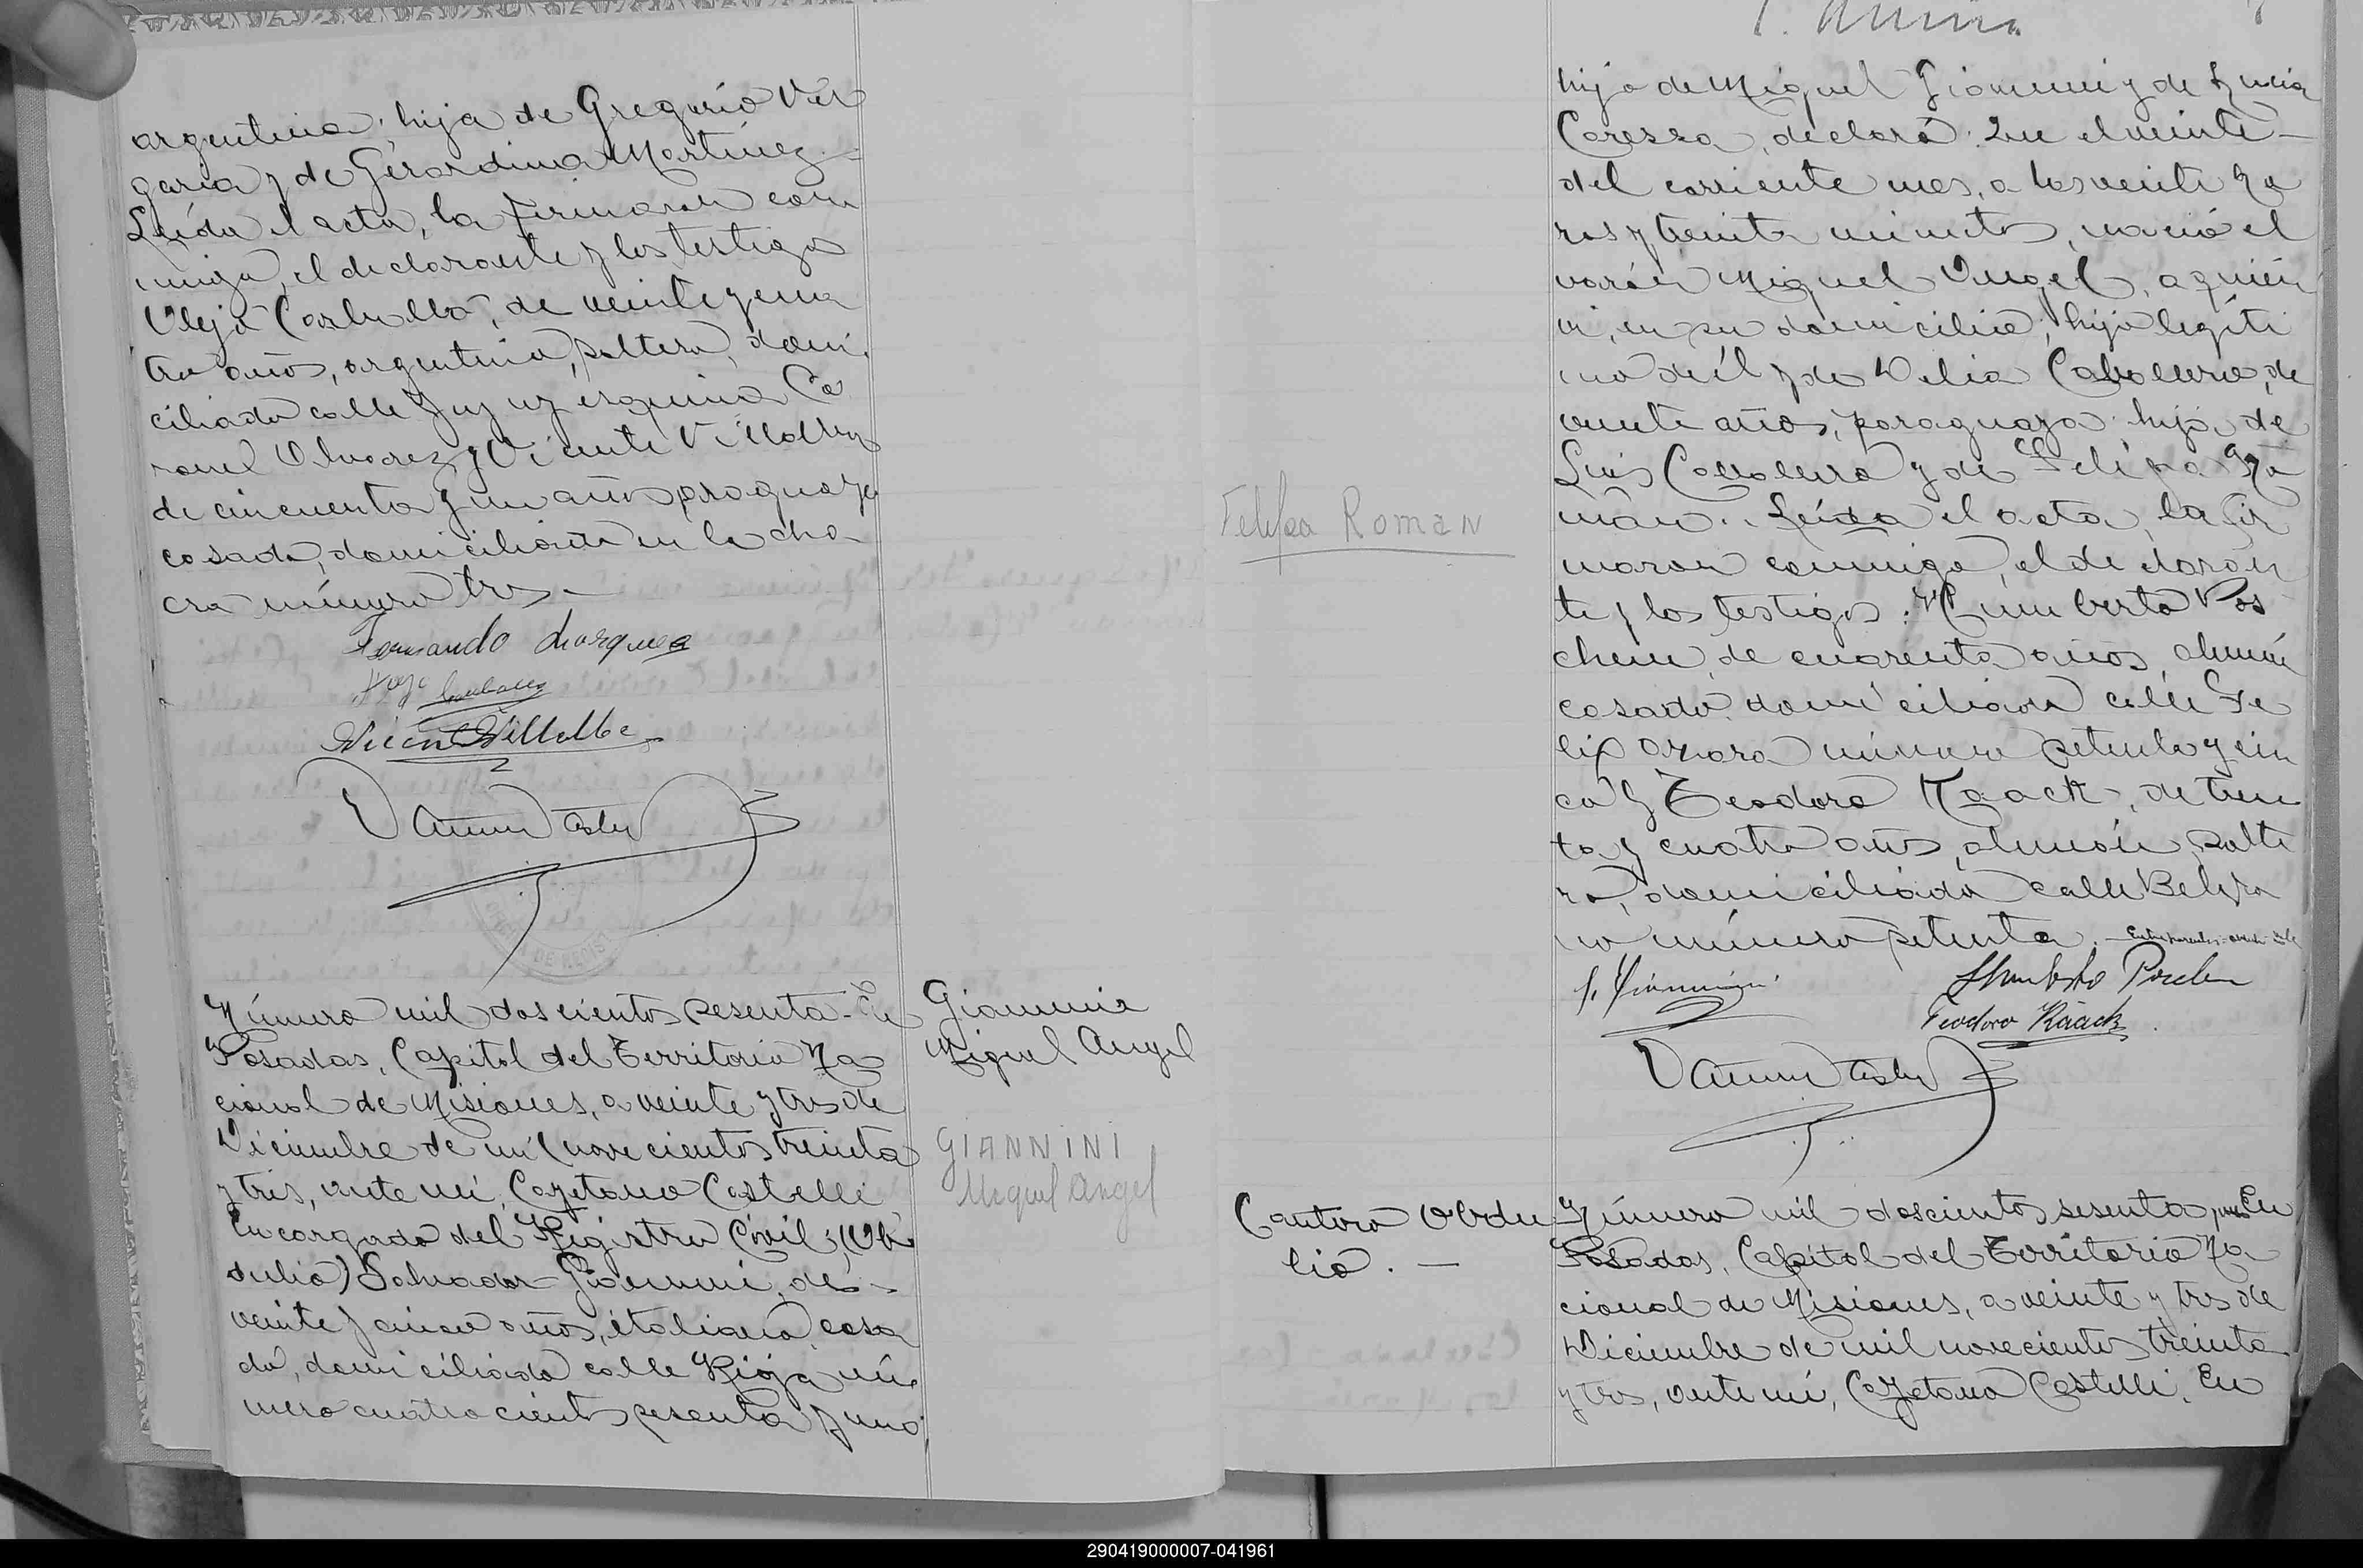 argentina; hija de Gregorio Ver
garia y de Gerardina Martinez.
Leída el acta, la firmaron con
migo, el declarante y los testigos
Alejo Carballo, de veinte y cua
tro años, argentino, soltero, domi
ciliado calle Jujuy esquina Co
ronel Alvarez y Vicente Villalba
de cincuenta y un años paraguayo
casado, domiciliado en la cha
cra número tres.—
Fernando
Vicente Villalba
Número mil doscientos sesenta.- En
Posadas, Capital del Territorio Na
cional de Misiones, a veinte y tres de
Diciembre de mil novecientos treinta
y tres, ante mi, Cayetano Castelli
Encargado del Registro Civil; (Ob
dulio) Salvador Giannini, de
veinte y cinco años, italiano casa
do, domiciliado calle Rioja nú
mero cuatrocientos sesenta y uno;
Giannini
Miguel Angel
GIANNINI
Miguel Angel
hijo de Miguel Giannini y de Lucia
Caressa, declaró: Que el veinte
del corriente mes, a las veinte ho
ras y treinta minutos, nació el
varón Miguel Angel, a quién
vi, en su domicilio; hijo legíti
mo de él y de Delia Caballero, de
veinte años, paraguaya: hija de
Luis Caballero y de Felipa Ro
mán. Leída el acta, la fir
maron conmigo, el declaran
te y los testigos: Humberto Pos
chen, de cuarenta años, alemán
casado, domiciliado calle Fe
lix Azara número setenta y cin
co y Teodoro Raack, de trein
ta y cuatro años, alemán, solte
ro, domiciliado calle Belgra
no número setenta.—
Felipa Roman
S. Giannini
Teodoro Raack
Cantero Obdu
lio.—
Número mil doscientos sesenta y uno En
Posadas, Capital del Territorio Na
cional de Misiones, a veinte y tres de
Diciembre de mil novecientos treinta
y tres, ante mí, Cayetano Castelli, En
290419000007-041961